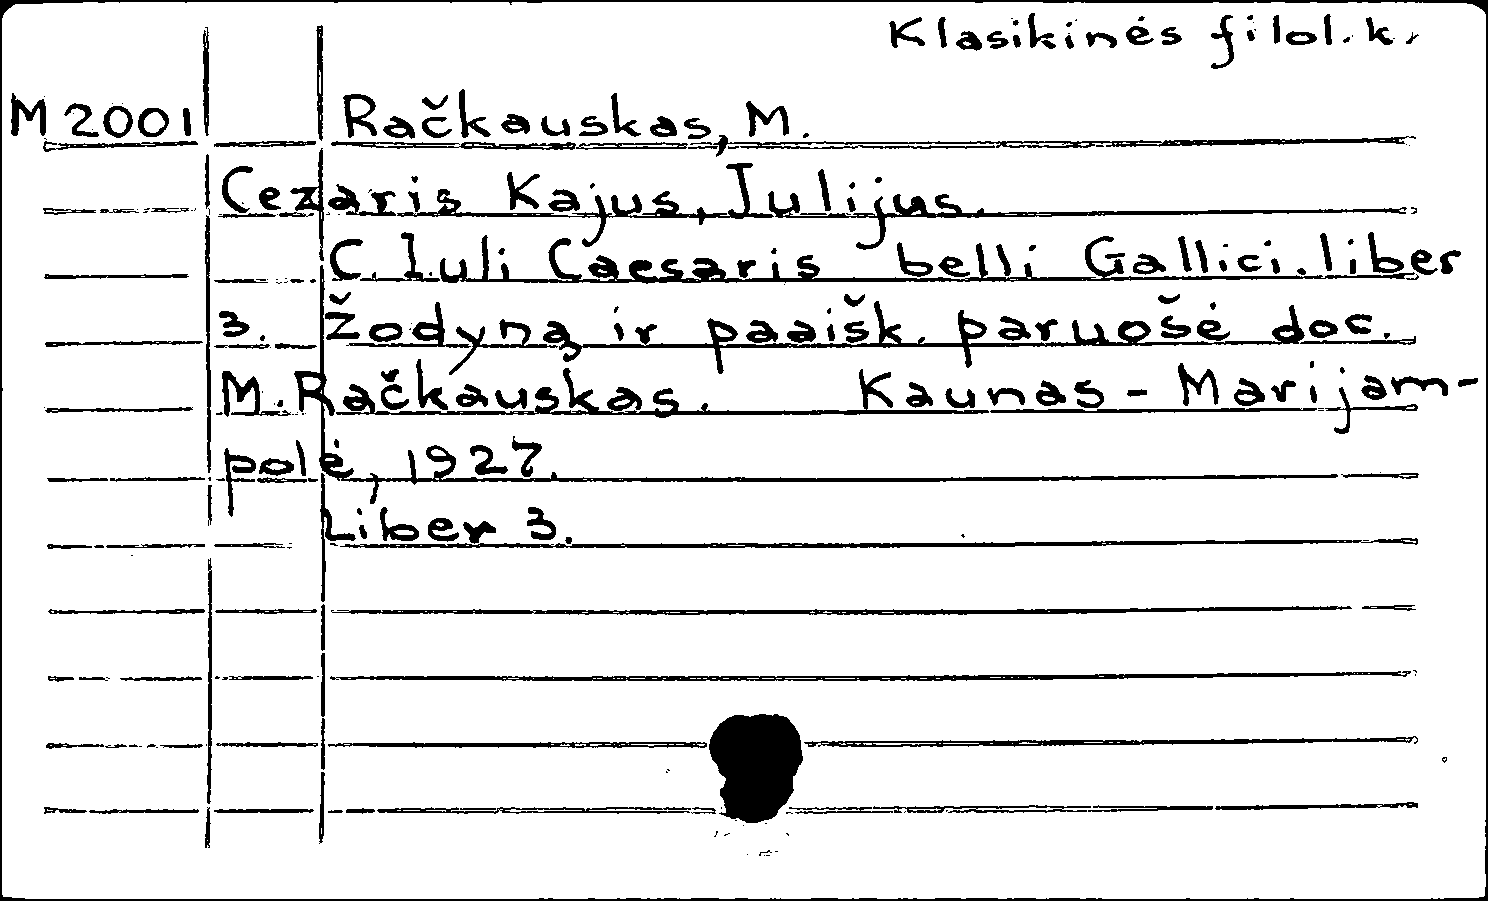 Klasikinės filol. k.
M 2001 Račkauskas, M.
Cezaris Kajus, Julijus.
C. Iuli Caesaris belli Gallici. liber
3. Žodyną ir paaišk. paruošė doc.
M. Račkauskas. Kaunas - Marijam-
polė, 1927.
Liber 3.